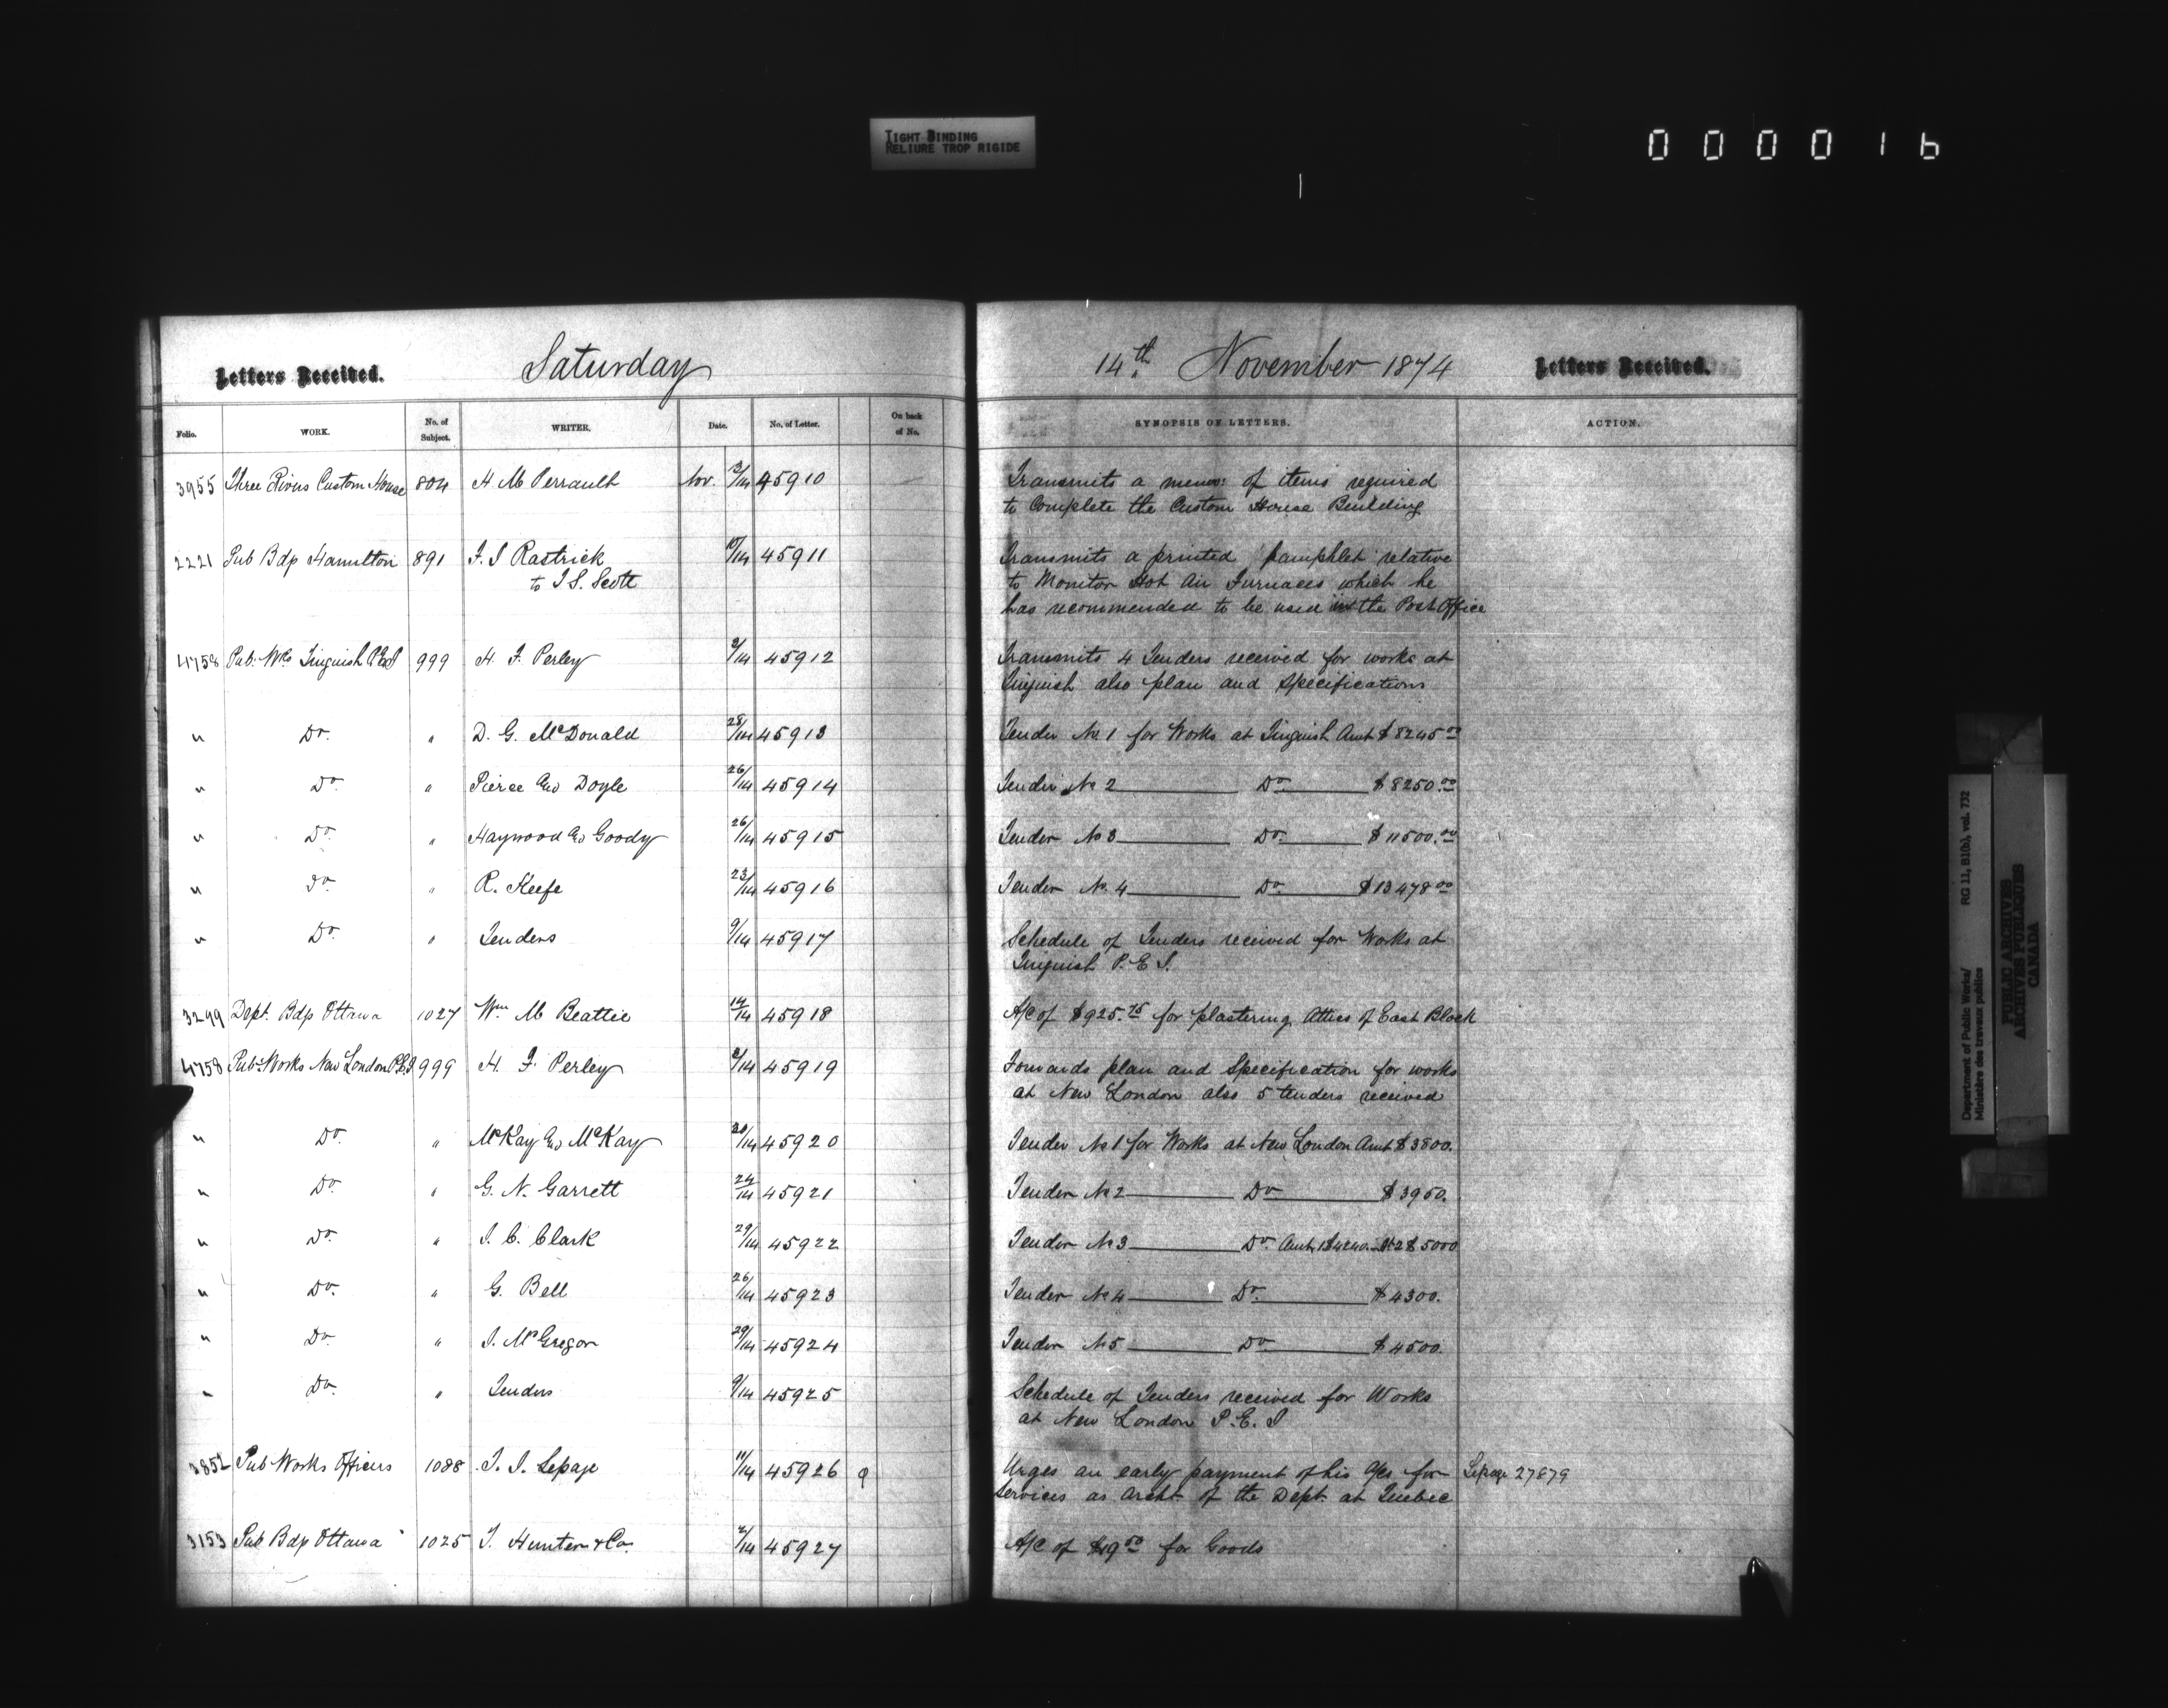 TIGHT BINDING
RELIURE TROP RIGIDE
000016
Letters Received. Saturday 14th November 1874 Letters Received.
Folio. WORK. No. of Subject. WRITER. Date. No. of Letter. On back of No. SYNOPSIS OF LETTERS. ACTION.
3955 Three Rivers Custom House 804 H M Perrault Nov. 3/14 45910 Transmits a memo: of items required
to Complete the Custom House Building
2221 Pub Bdgs Hamilton 891 F. J Rastrick 10/14 45911 Transmits a printed pamphlet relative
to T. S. Scott to Monitor Hot Air Furnaces which he
has recommended to be used in the Post Office
4758 Pub. Wks Tinguish P.E.I 999 H. F. Perley 2/14 45912 Transmits 4 Tenders received for works at
Tinguish also plan and specifications
" Do. " D. G. McDonald 28/14 45913 Tender No. 1 for Works at Tinguish Amt $8245.00
" Do. " Pierce and Doyle 26/14 45914 Tender No 2 Do $8250.00
" Do. " Haywood and Goody 26/14 45915 Tender No 3 Do $11500.00
" Do. " R. Keefe 23/14 45916 Tender No. 4 Do $13478.00
" Do. " Tenders 9/14 45917 Schedule of Tenders received for Works at
Tinguish P. E I.
3299 Dept. Bdgs Ottawa 1027 Wm M Beattie 14/14 45918 A/C of $925.75 for plastering Attics of East Block
4758 Pub Works New London P.E.I 999 H. F. Perley 2/14 45919 Forwards plan and Specification for works
at New London also 5 tenders received
" Do. " McKay and McKay 20/14 45920 Tender No 1 for Works at New London Amt $3800.
" Do. " G. N. Garrett 24/14 45921 Tender No 2 Do $3950.
" Do. " J. C. Clark 29/14 45922 Tender No 3 Do. Amt 1 $4240. 2 $5000
" Do. " G. Bell 26/14 45923 Tender No 4 Do. $4300.
" Do. " J. McGregor 29/14 45924 Tender No 5 Do $4500.
" Do. " Tenders 9/14 45925 Schedule of Tenders received for Works
at New London P. E. I
3852 Pub Works Officers 1088 J. J. Lepage 11/14 45926 Urges an early payment of his A/cs for Lepage 27879
Services as Archt. of the Dept. at Quebec
3153 Pub Bdgs Ottawa 1025 J. Hunter & Co. 2/14 45927 A/C of $19.50 for Goods
Department of Public Works/
Ministère des travaux publics
RG 11, B1(b), vol. 732
PUBLIC ARCHIVES
ARCHIVES PUBLIQUES
CANADA